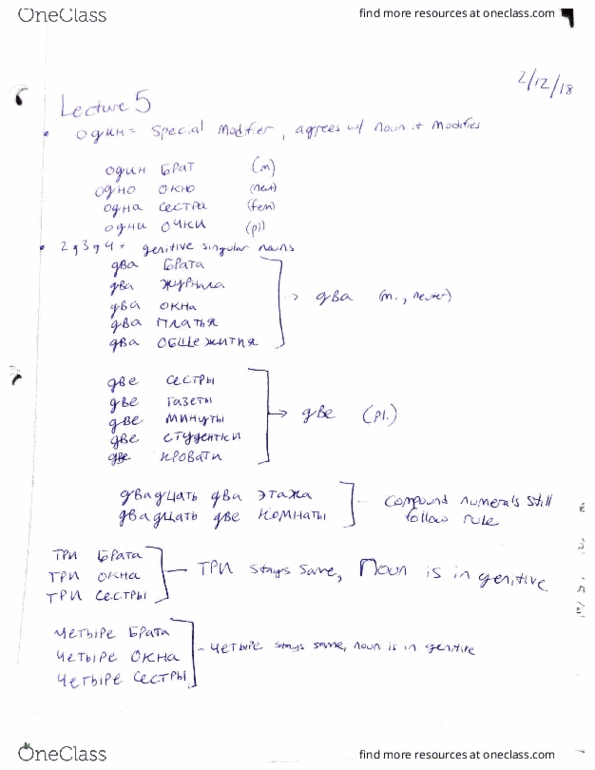 OneClass
find more resources at oneclass.com
2/12/18
Lecture 5
• один = special modifier, agrees w/ noun it modifies
один брат (m)
одно окно (neut)
одна сестра (fem)
одни очки (pl)
• 2, 3, 4 + genitive singular nouns
два брата
два журнала
два окна → два (m., neuter)
два платья
два общежития
две сестры
две газеты
две минуты → две (pl.)
две студентки
две кровати
двадцать два этажа - compound numerals still
двадцать две комнаты follow rule
три брата
три окна - три stays same, noun is in genitive
три сестры
четыре брата
четыре окна - четыре stays same, noun is in genitive
четыре сестры
OneClass
find more resources at oneclass.com